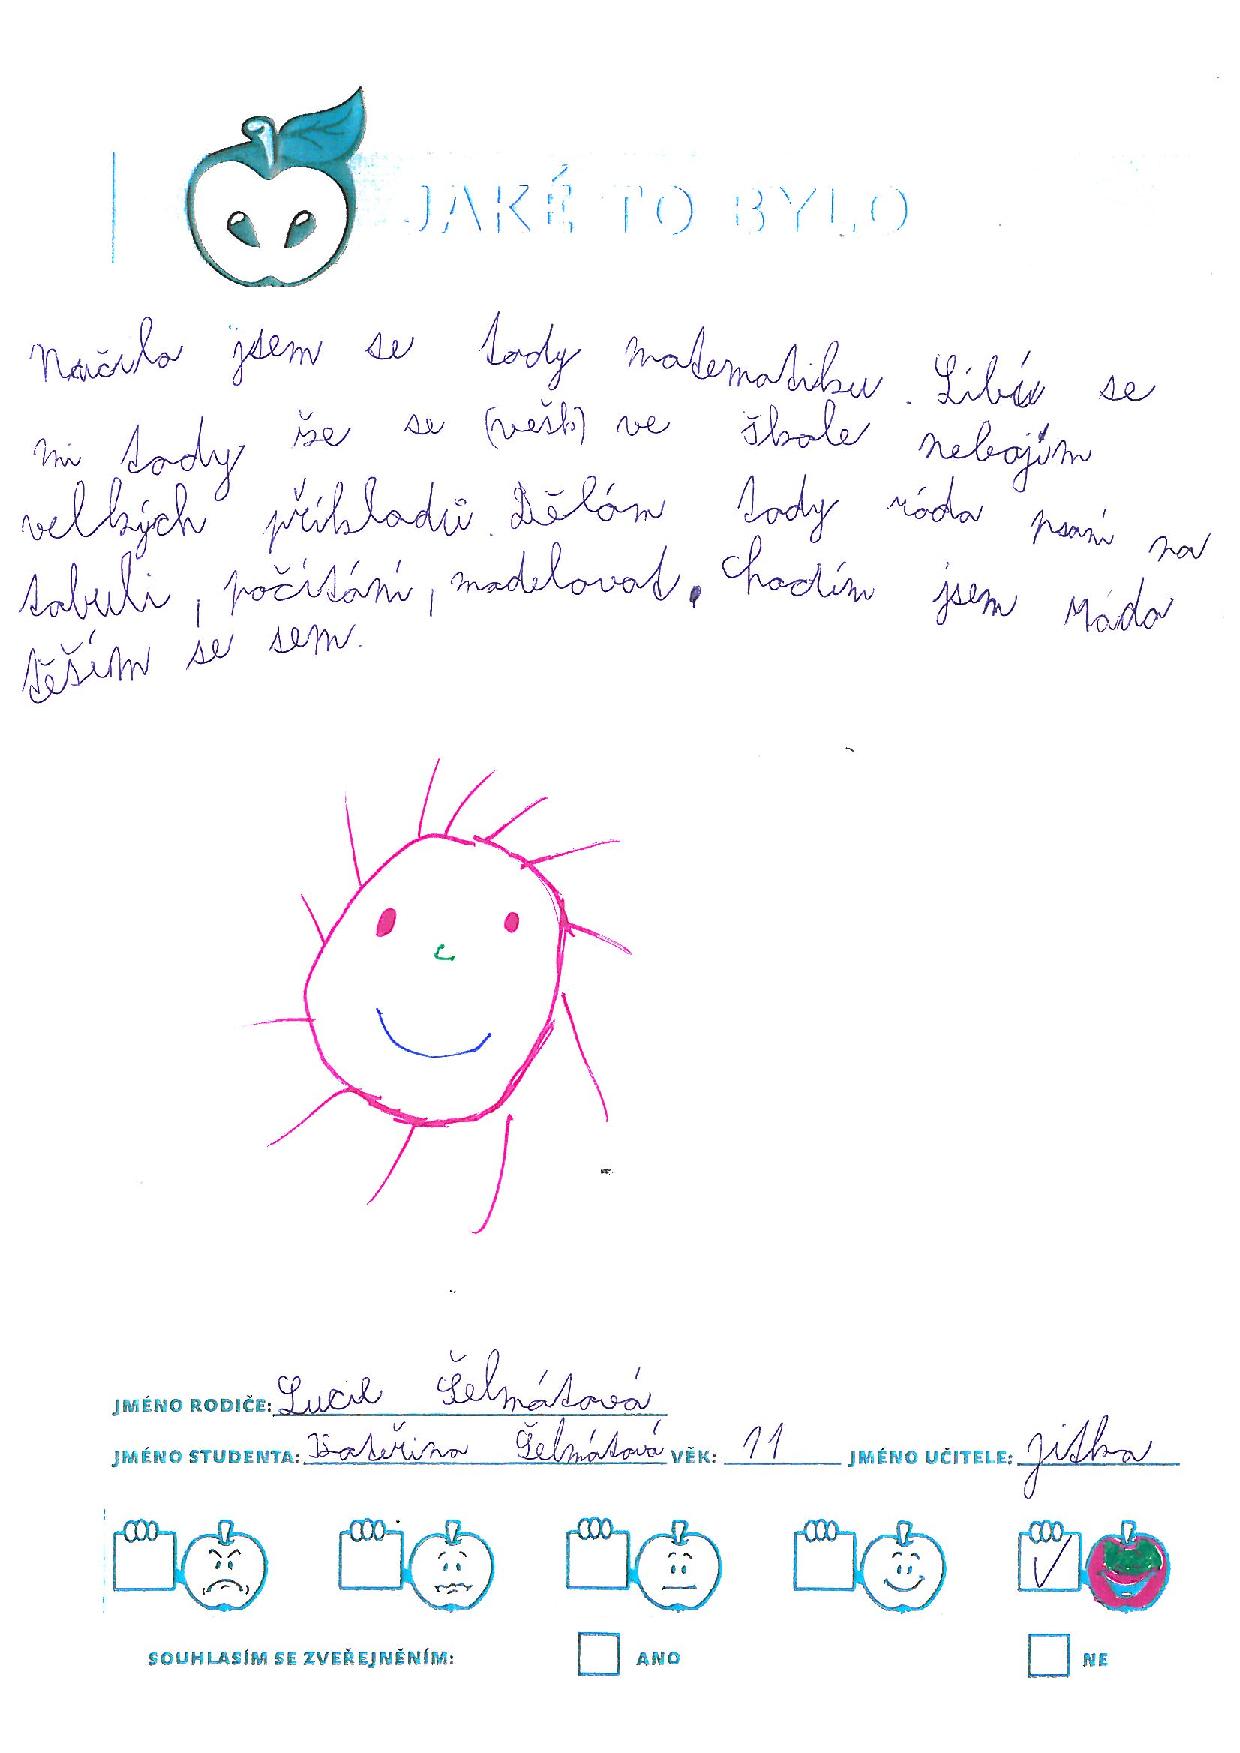 JAKÉ TO BYLO
Načila jsem se tady matematiku. Líbí se
mi tady že se (vešk) ve škole nebojím
velkých příkladů. Dělám tady ráda psaní na
tabuli, počítání, modelovat. Chodím jsem ráda
těším se sem.
JMÉNO RODIČE: Lucie Šelmátová
JMÉNO STUDENTA: Kateřina Šelmátová VĚK: 11 JMÉNO UČITELE: Jitka
SOUHLASÍM SE ZVEŘEJNĚNÍM: ANO NE